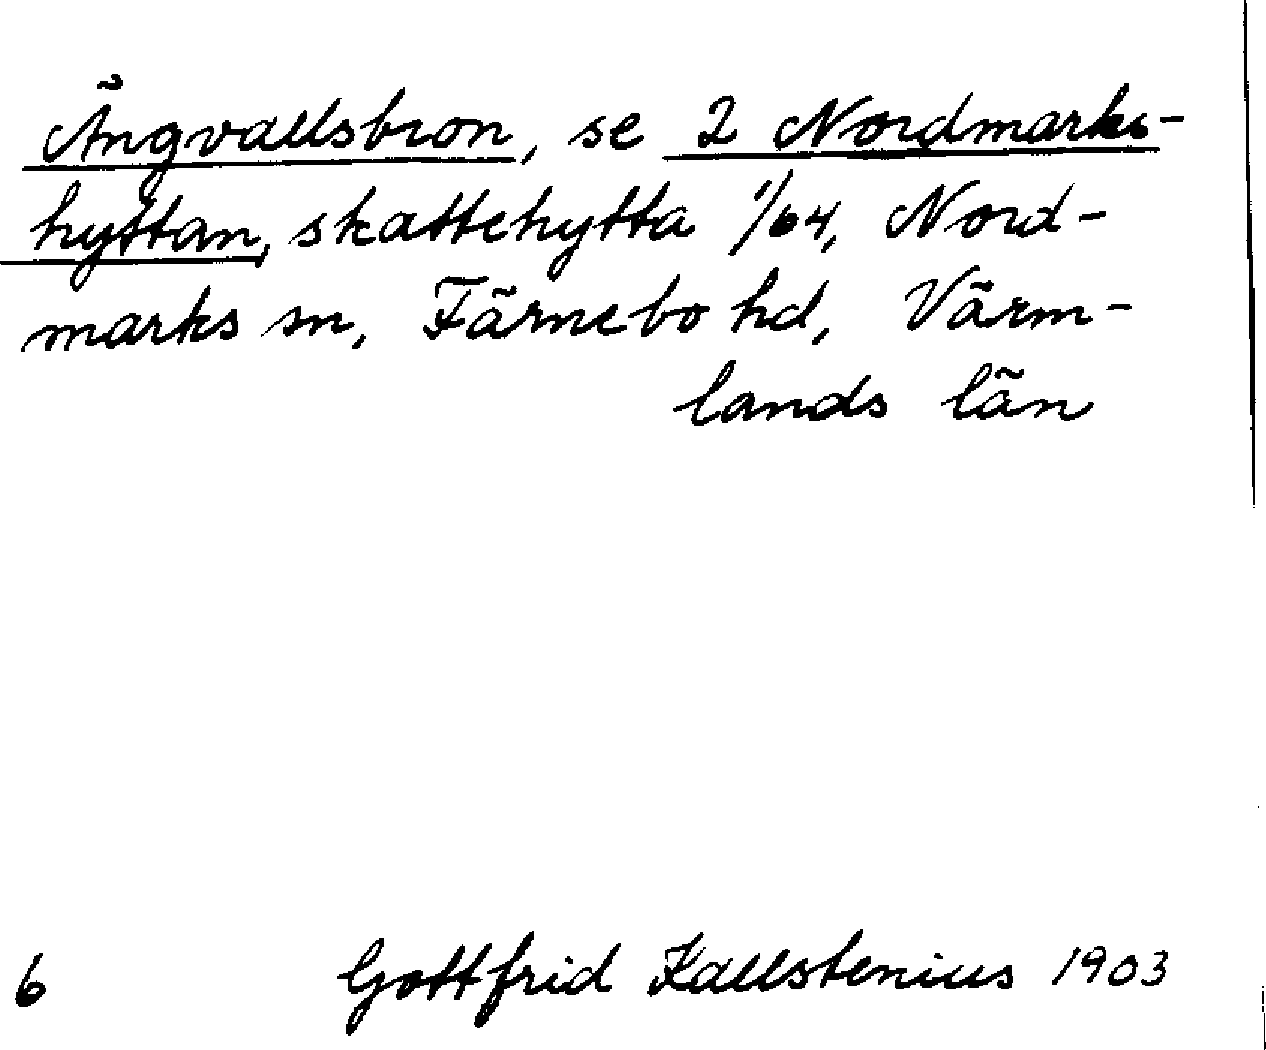 Ängvallsbron, se 2 Nordmarks-
hyttan, skattehytta 1/64, Nord-
marks sn, Färnebo hd, Värm-
lands län
6 Gottfrid Kallstenius 1903